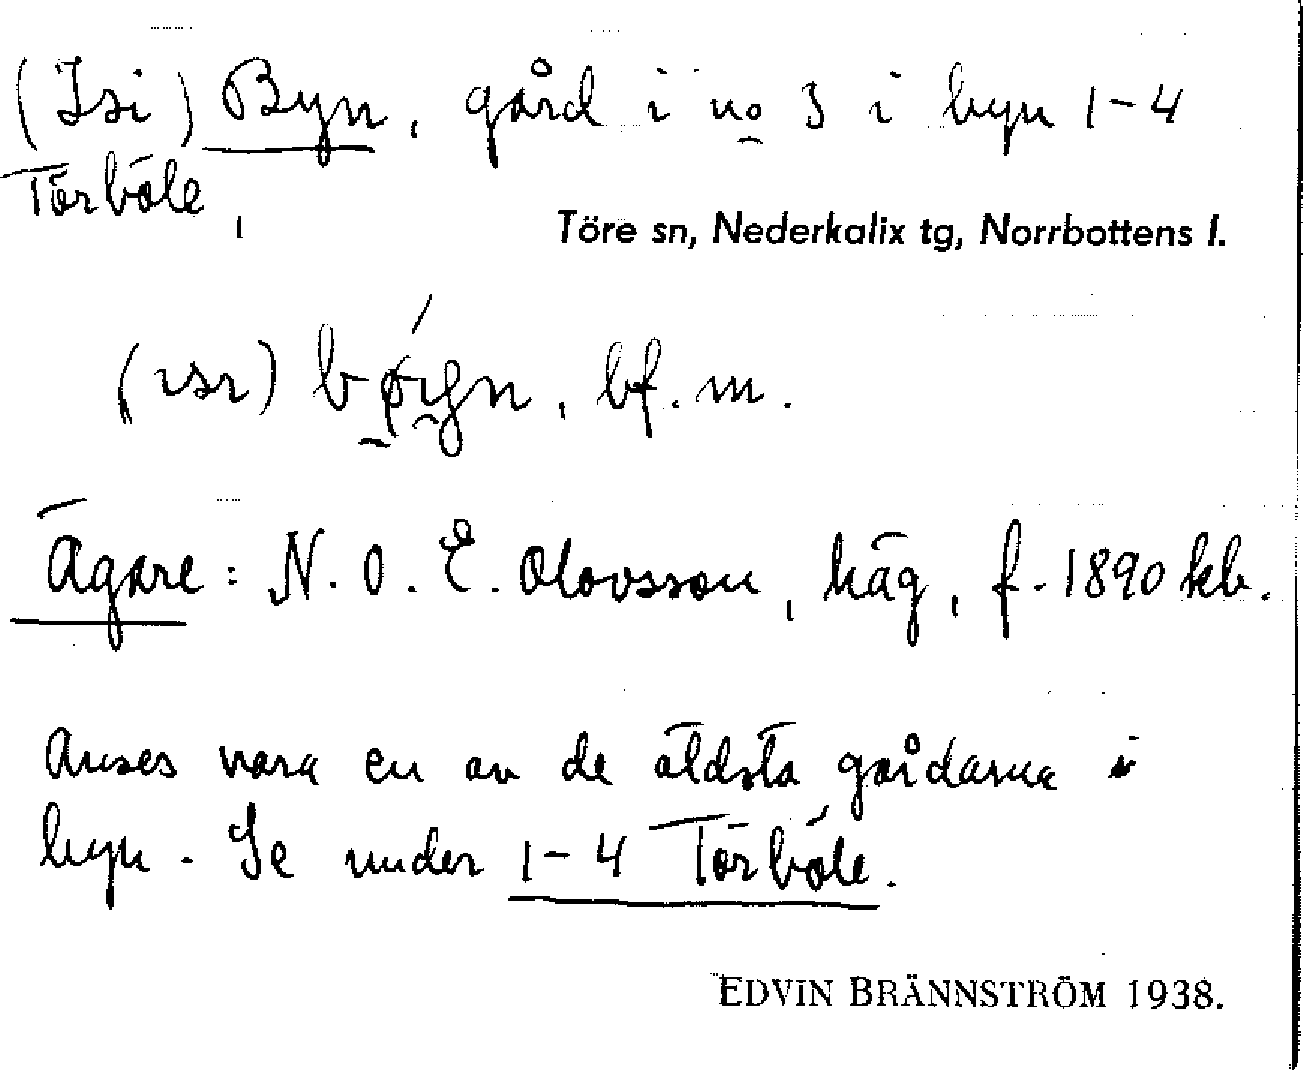 (Isi) Byn, gård i no 3 i byn 1-4
Törböle,
Töre sn, Nederkalix tg, Norrbottens l.
bf. m.
Ägare: N. O. E. Olovsson, häg, f. 1890 kb.
Anses vara en av de äldsta gårdarna i
byn. Se under 1-4 Törböle.
EDVIN BRÄNNSTRÖM 1938.